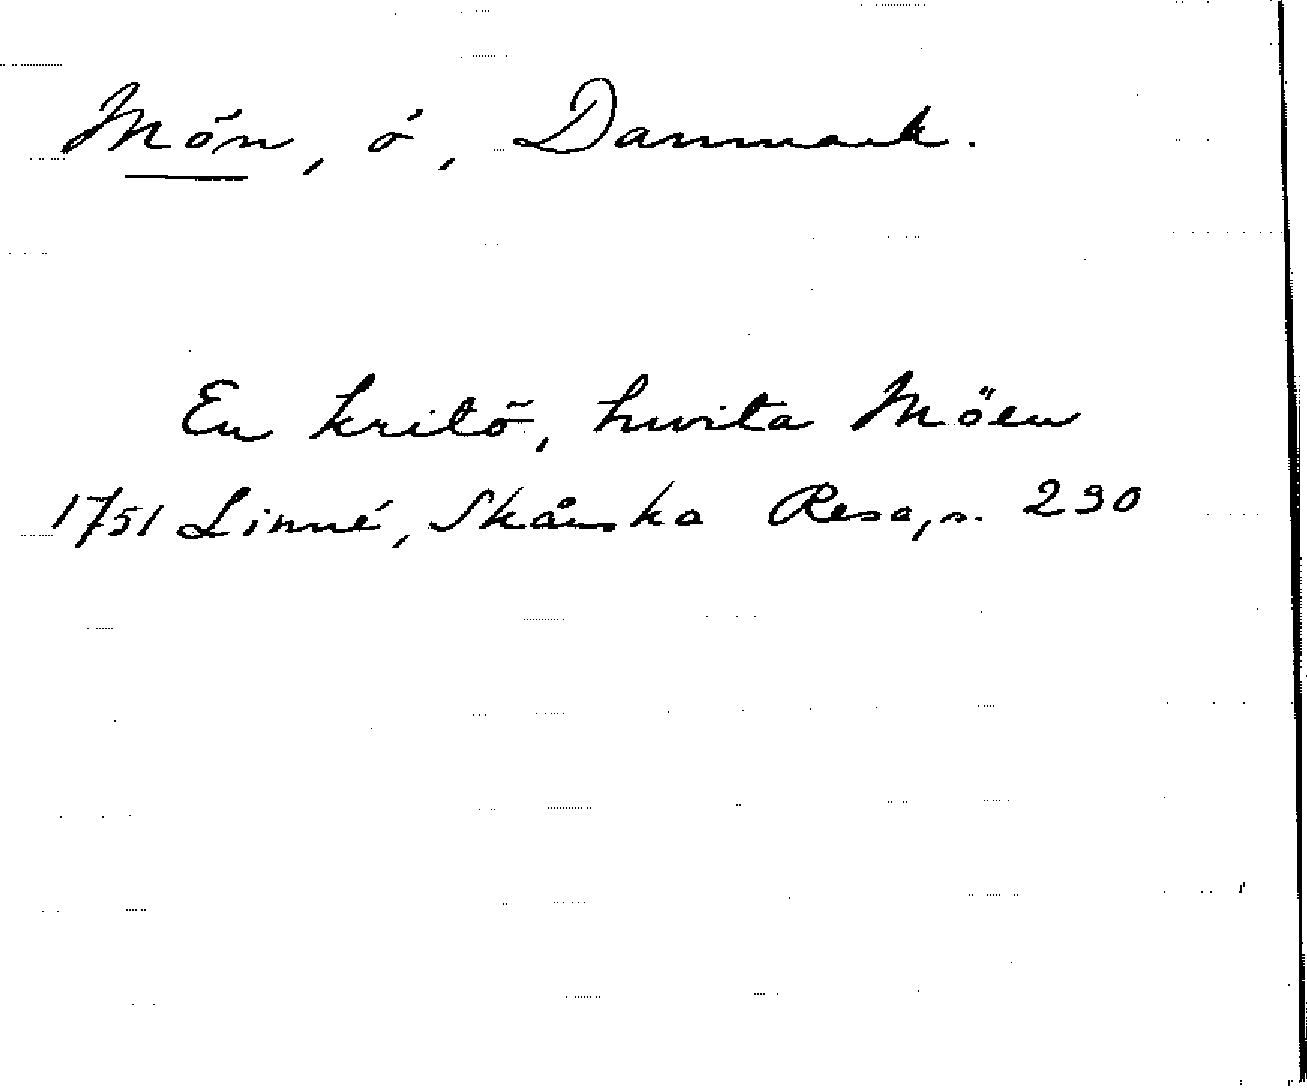 Mön, ö, Danmark.
En kritö, huvita Möen
1751 Linné, Skånska Resa, s. 290